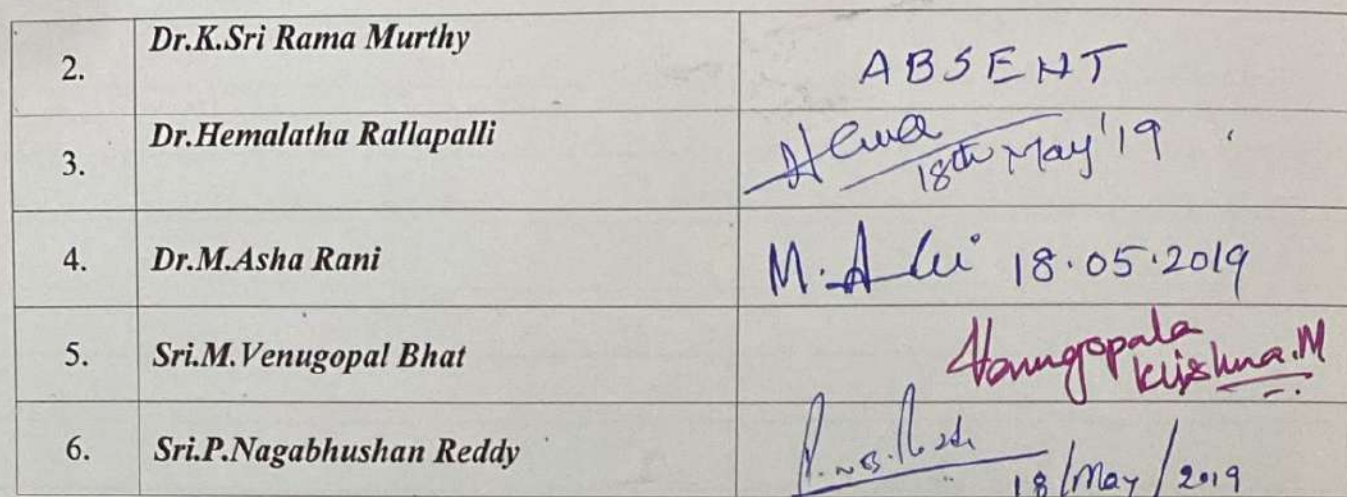 2. Dr.K.Sri Rama Murthy ABSENT
3. Dr.Hemalatha Rallapalli Hema
18th May'19
4. Dr.M.Asha Rani M. 18.05.2019
5. Sri.M.Venugopal Bhat Venugopala
Krishna.M
6. Sri.P.Nagabhushan Reddy
18/May/2019